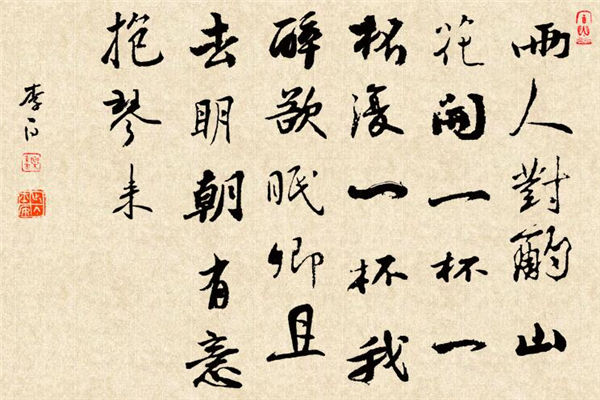 兩人對酌山
花開一杯一
杯復一杯我
醉欲眠卿且
去明朝有意
抱琴来
李白